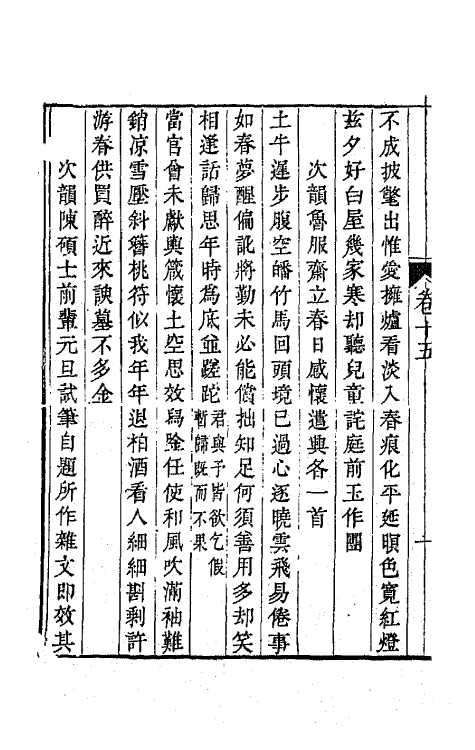 卷十五
不成披氅出惟愛擁爐看淡入春痕化平延暝色寬紅燈
玆夕好白屋幾家寒却聽兒童詫庭前玉作團
次韻魯服齋立春日感懷遣興各一首
土牛遲步腹空皤竹馬回頭境已過心逐曉雲飛易倦事
如春夢醒偏訛將勤未必能償拙知足何須善用多却笑
相逢話歸思年時為底並蹉跎
君與予皆欲乞假
暫歸旣而不果
當官曾未獻輿箴懷土空思效舄唫任使和風吹滿袖難
銷凉雪壓斜簪桃符似我年年退柏酒看人細細斟剩許
游春供買醉近來諛墓不多金
次韻陳碩士前輩元旦試筆自題所作雜文即效其